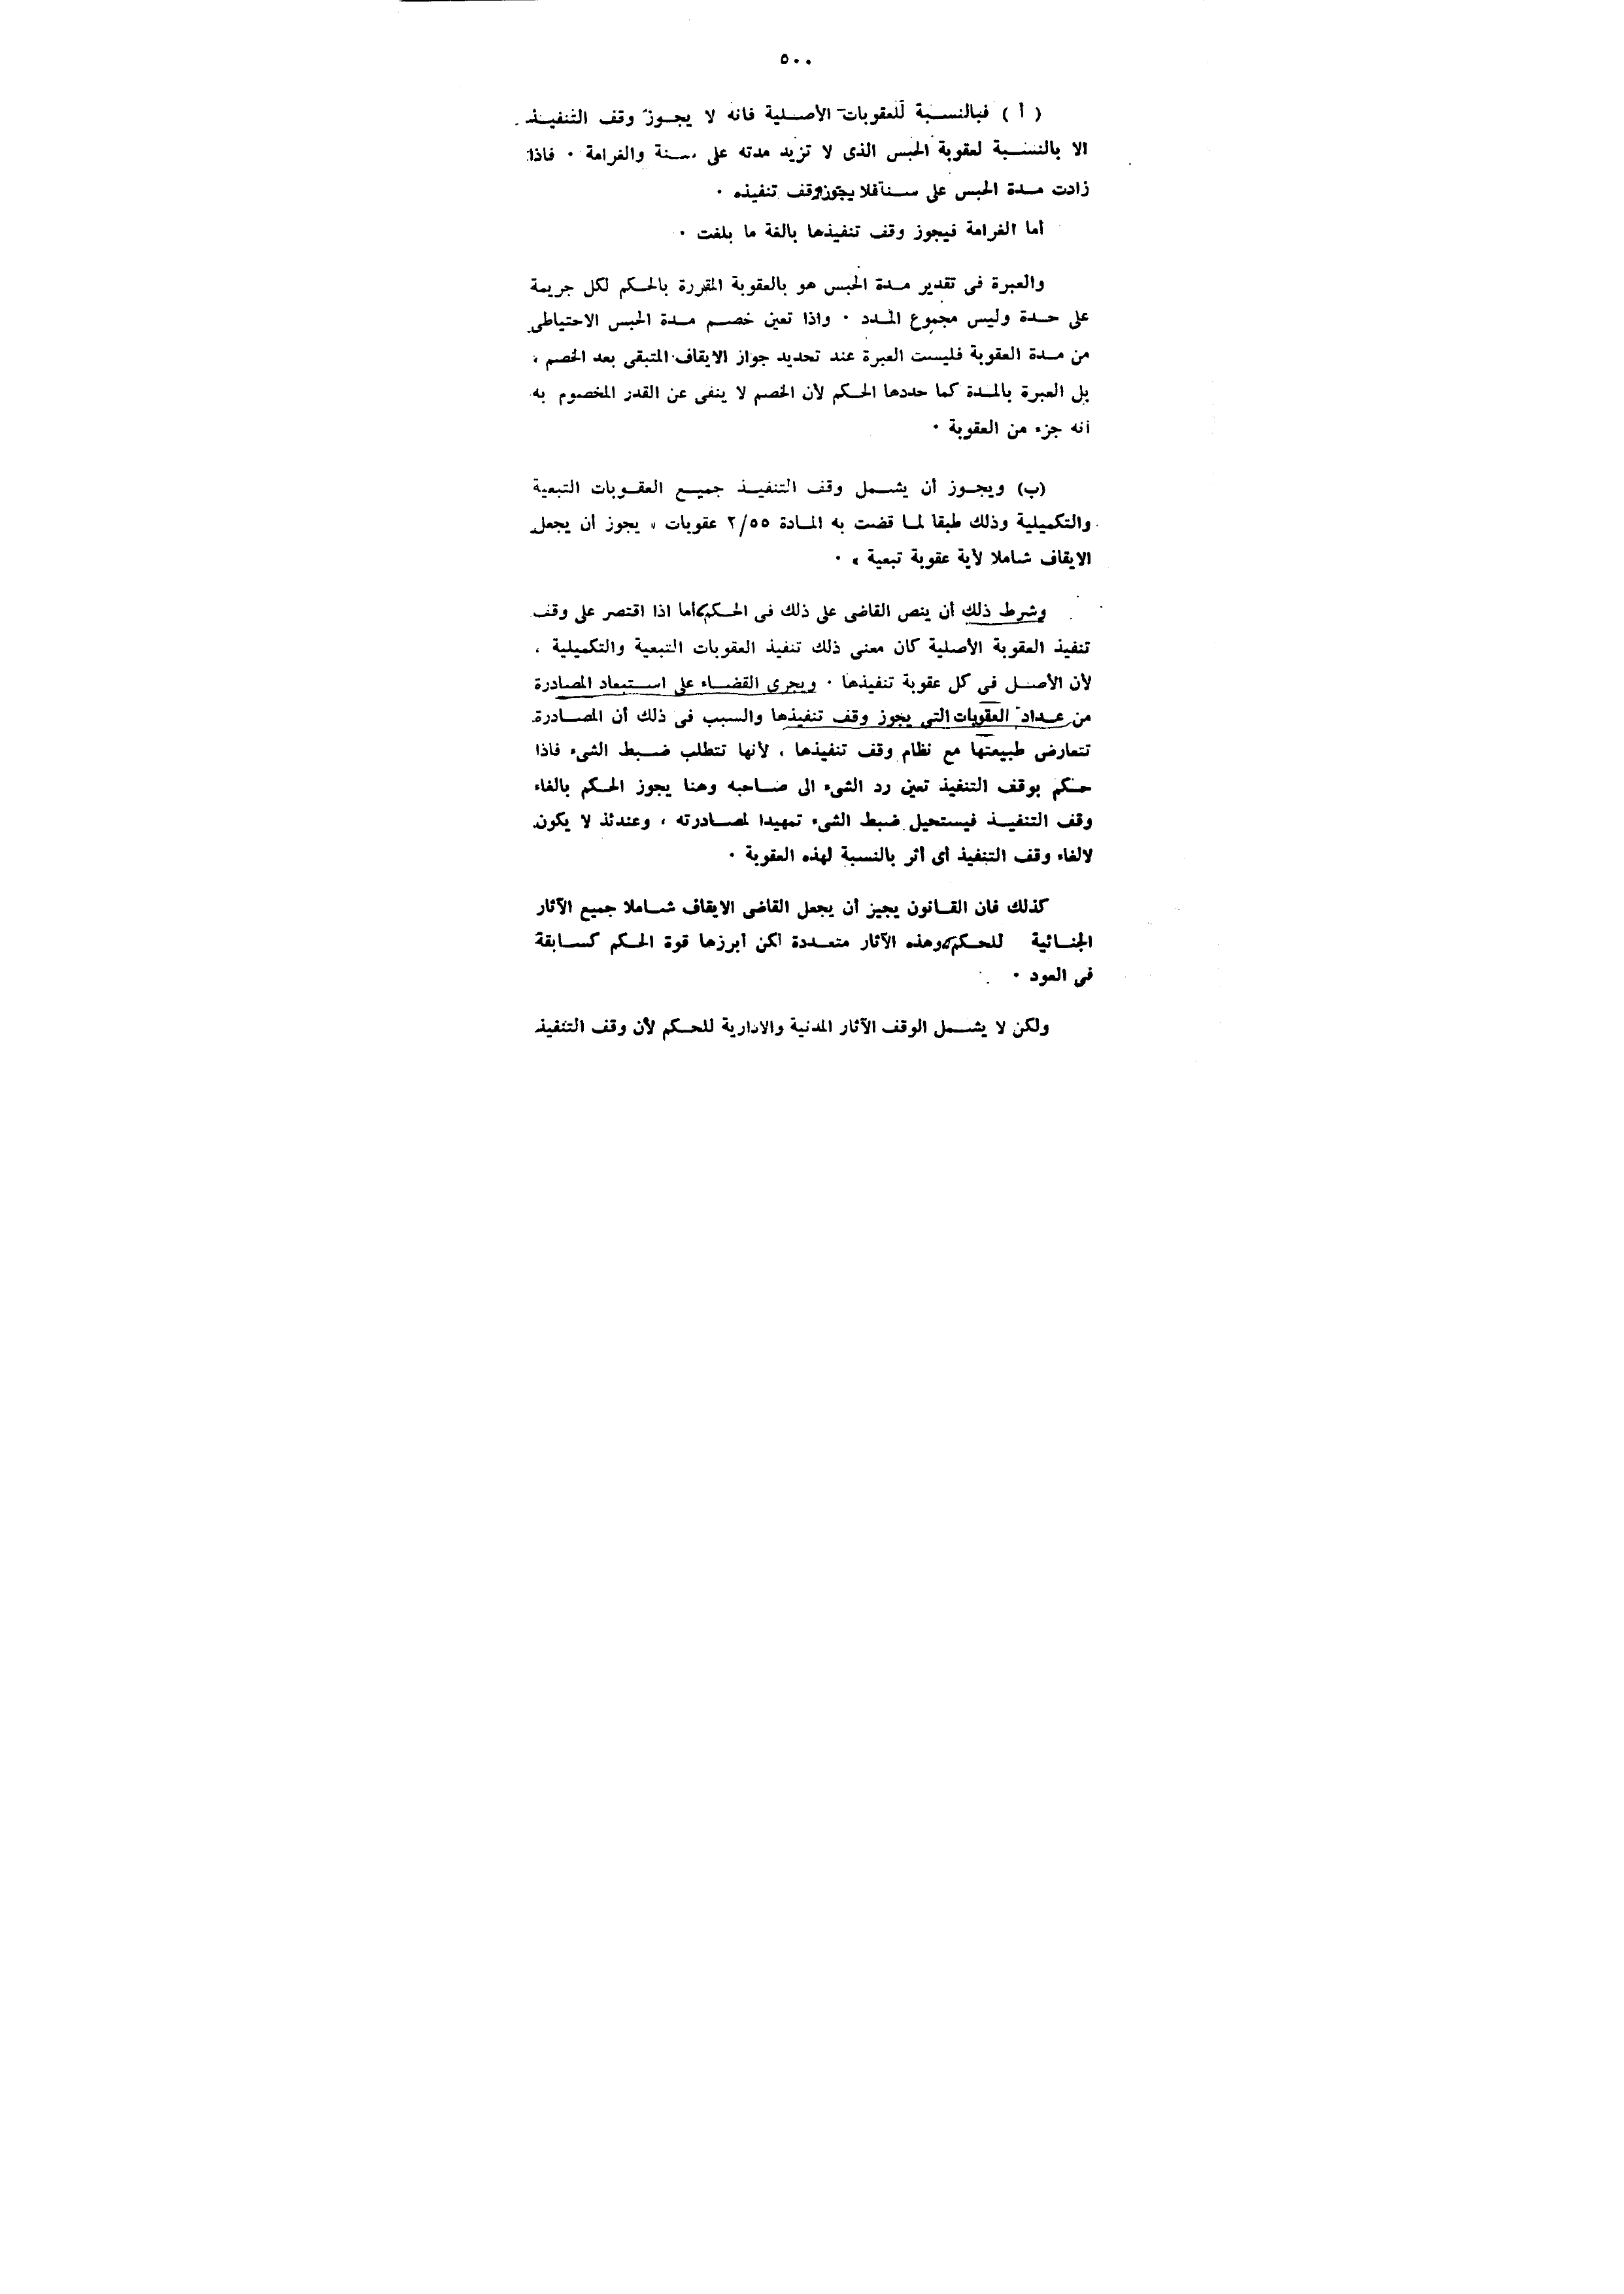 ٥٠٠
( أ ) فبالنسبة للعقوبات الأصلية فانه لا يجوز وقف التنفيذ
الا بالنسبة لعقوبة الحبس الذى لا تزيد مدته على سنة والغرامة ٠ فاذا
زادت مدة الحبس على سنة فلا يجوز وقف تنفيذه ٠
أما الغرامة فيجوز وقف تنفيذها بالغة ما بلغت ٠
والعبرة فى تقدير مدة الحبس هو بالعقوبة المقررة بالحكم لكل جريمة
على حدة وليس مجموع المدد ٠ واذا تعين خصم مدة الحبس الاحتياطى
من مدة العقوبة فليست العبرة عند تحديد جواز الايقاف المتبقى بعد الخصم ،
بل العبرة بالمدة كما حددها الحكم لأن الخصم لا ينفى عن القدر المخصوم به
أنه جزء من العقوبة ٠
(ب) ويجوز أن يشمل وقف التنفيذ جميع العقوبات التبعية
والتكميلية وذلك طبقا لما قضت به المادة ٢/٥٥ عقوبات « يجوز أن يجعل
الايقاف شاملا لأية عقوبة تبعية » ٠
وشرط ذلك أن ينص القاضى على ذلك فى الحكم، أما اذا اقتصر على وقف
تنفيذ العقوبة الأصلية كان معنى ذلك تنفيذ العقوبات التبعية والتكميلية ،
لأن الأصل فى كل عقوبة تنفيذها ٠ ويجرى القضاء على استبعاد المصادرة
من عداد العقوبات التى يجوز وقف تنفيذها والسبب فى ذلك أن المصادرة
تتعارض طبيعتها مع نظام وقف تنفيذها ، لأنها تتطلب ضبط الشىء فاذا
حكم بوقف التنفيذ تعين رد الشىء الى صاحبه وهنا يجوز الحكم بالغاء
وقف التنفيذ فيستحيل ضبط الشىء تمهيدا لمصادرته ، وعندئذ لا يكون
لالغاء وقف التنفيذ أى أثر بالنسبة لهذه العقوبة ٠
كذلك فان القانون يجيز أن يجعل القاضى الايقاف شاملا جميع الآثار
الجنائية للحكم، وهذه الآثار متعددة لكن أبرزها قوة الحكم كسابقة
فى العود ٠
ولكن لا يشمل الوقف الآثار المدنية والادارية للحكم لأن وقف التنفيذ